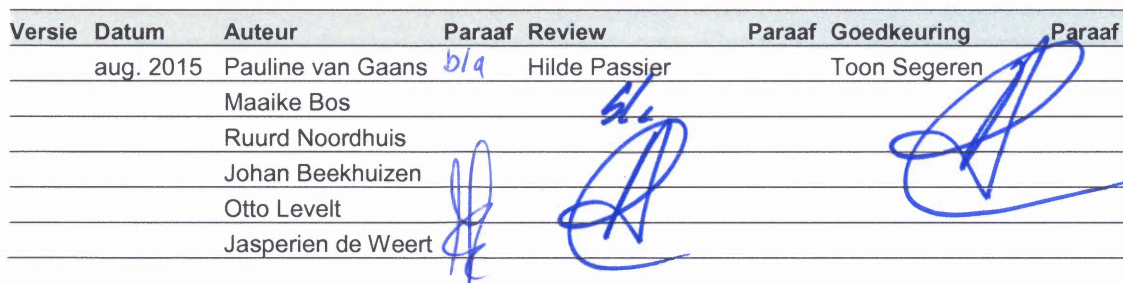 Versie Datum Auteur Paraaf Review Paraaf Goedkeuring Paraaf
aug. 2015 Pauline van Gaans b/a Hilde Passier Toon Segeren
Maaike Bos
Ruurd Noordhuis
Johan Beekhuizen
Otto Levelt
Jasperien de Weert